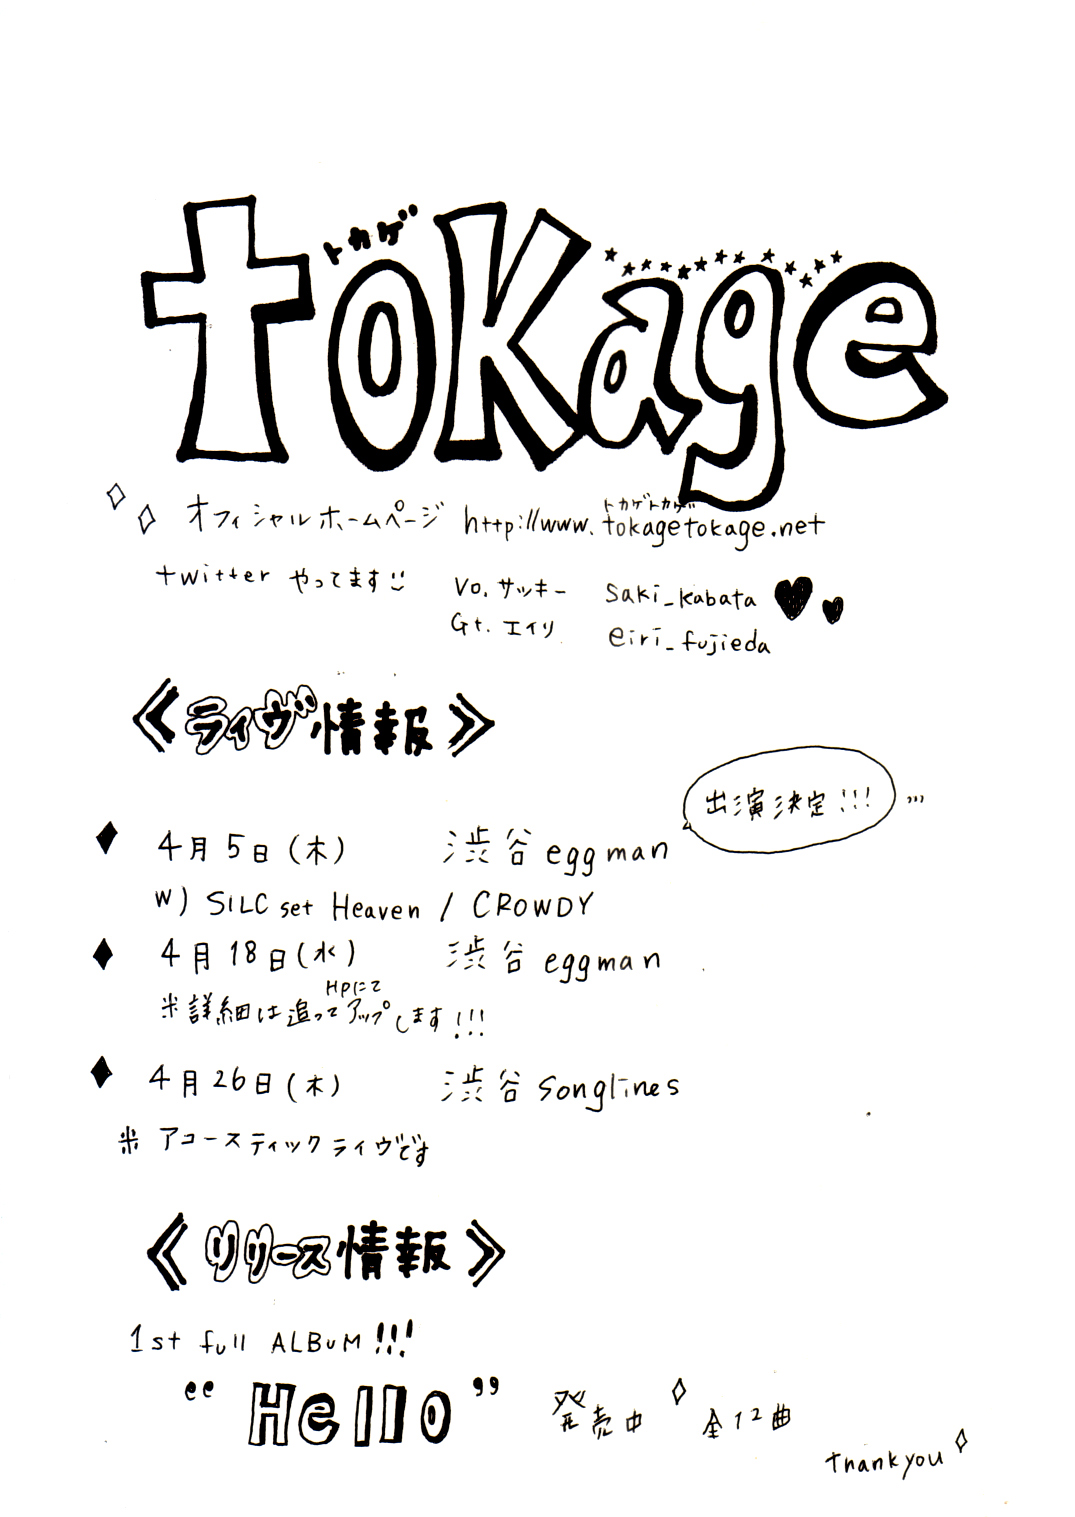 トカゲ
tokage
オフィシャルホームページ http://www.tokagetokage.net
トカゲトカゲ
twitterやってます Vo. サッキー saki_kabata
Gt. エイリ eiri_fujieda
《ライヴ情報》
出演決定!!!
4月5日(木) 渋谷eggman
w) SILC set Heaven / CROWDY
4月18日(水) 渋谷eggman
HPにて
※詳細は追ってアップします!!!
4月26日(木) 渋谷songlines
※アコースティックライヴです
《リリース情報》
1st full ALBuM!!!
“Hello” 発売中 全12曲
thankyou